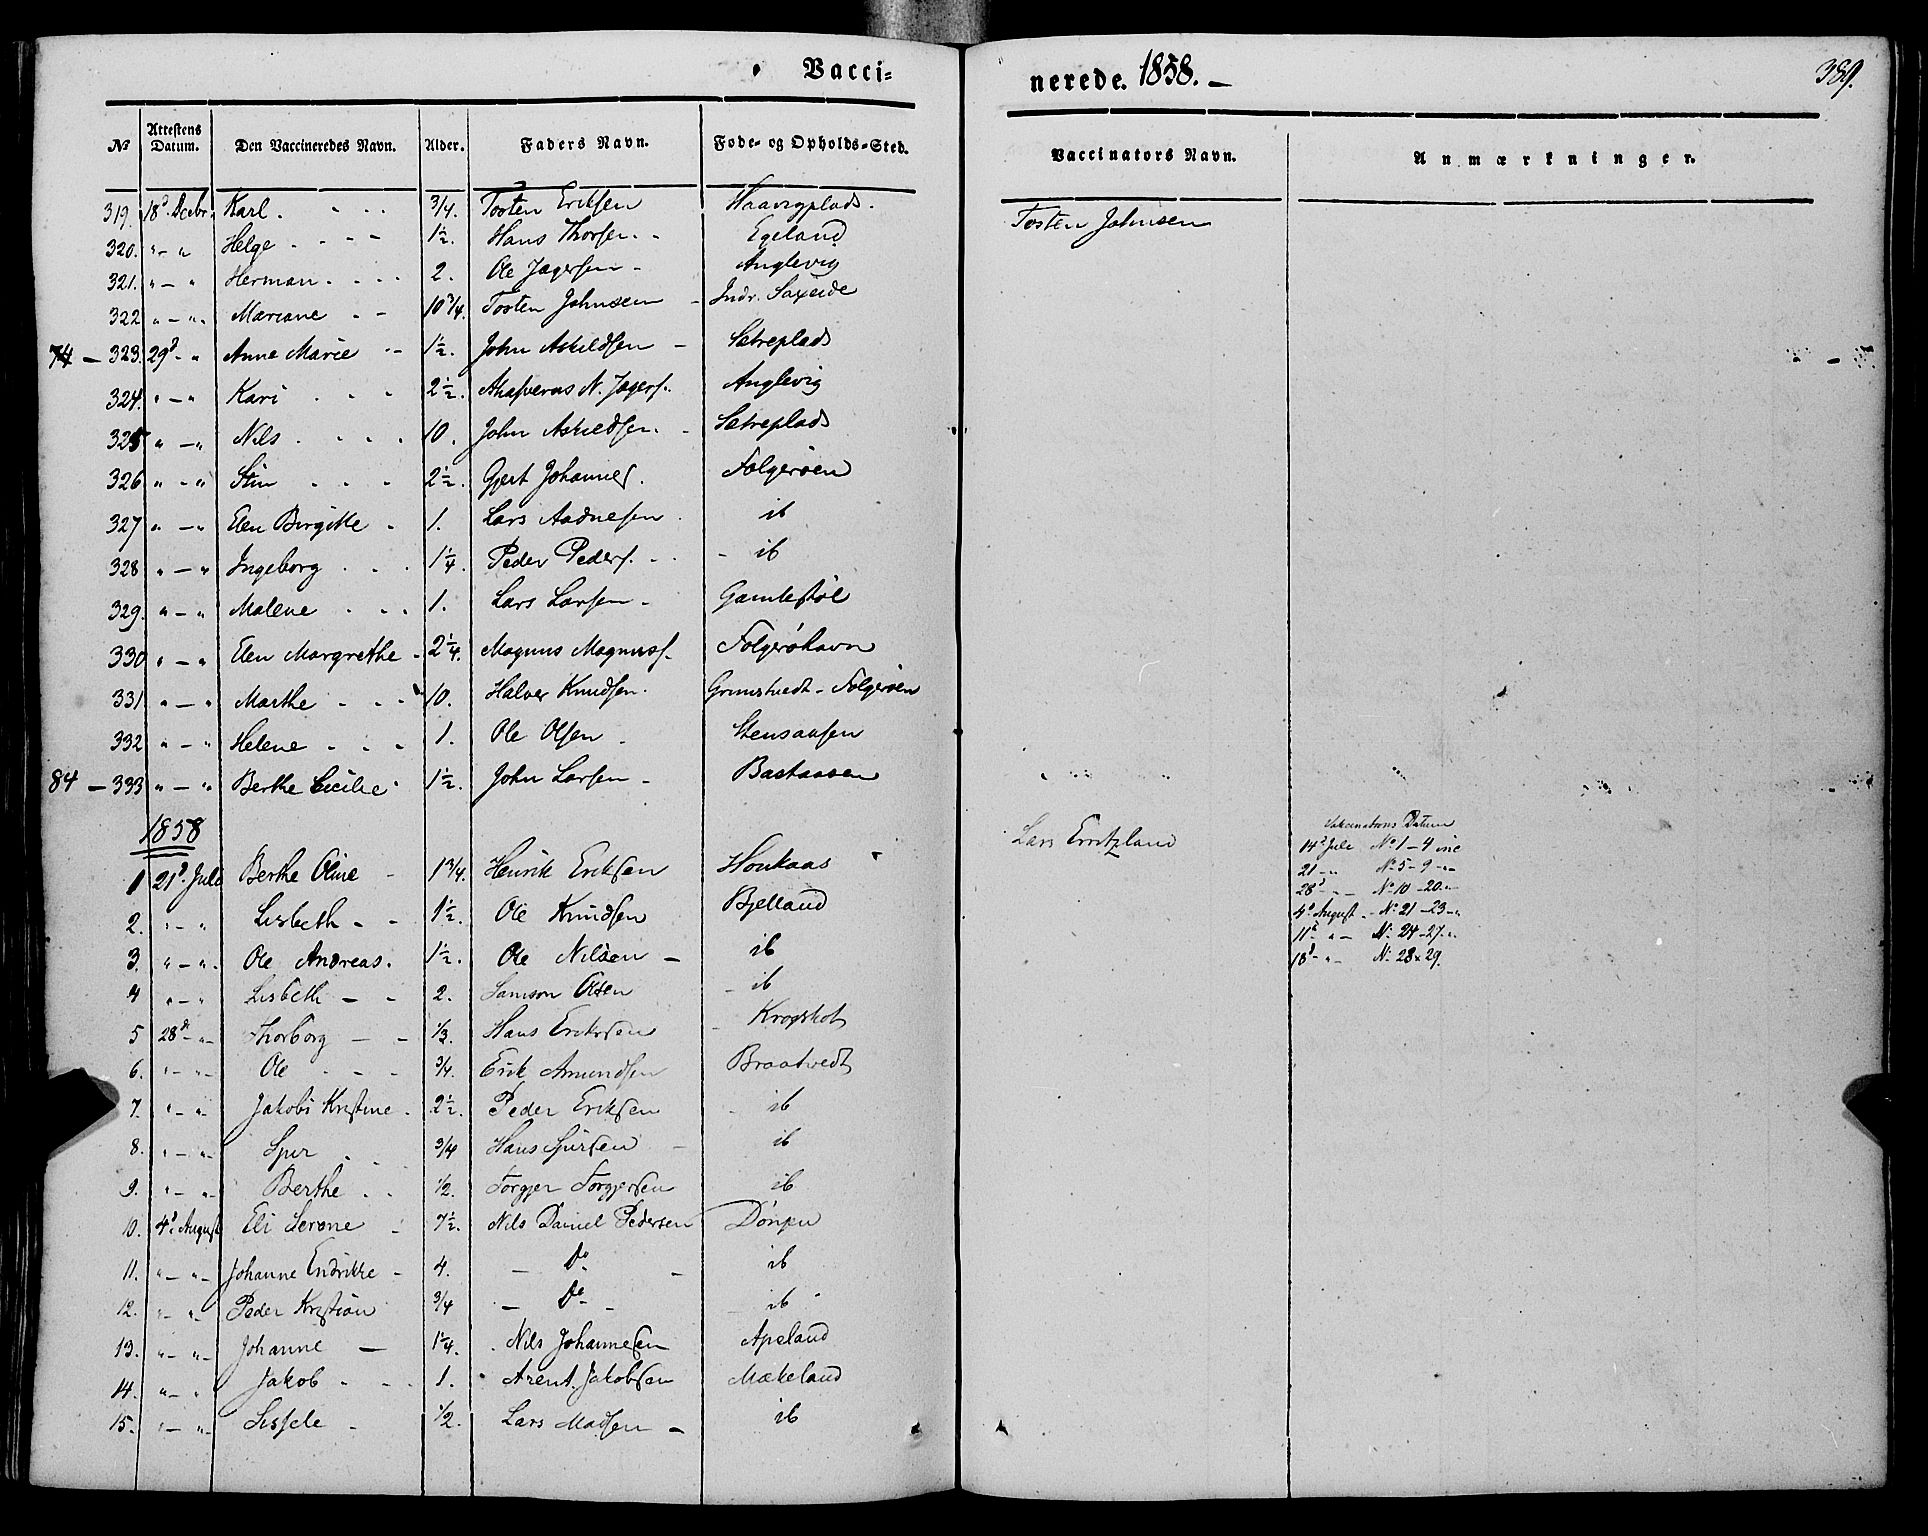 Vacci-
nerede. 1858. -
389.
No Attestens Datum. Den Vaccineredes Navn. Alder. Faders Navn. Føde- og Opholds-Sted. Vaccinators Navn. Anmærkninger.
319. 18d Decbr. Karl. 3/4. Tosten Eriksen Haavigplads. Tosten Johnsen
320. " - " Helge 1 1/2. Hans Thorsen. Egeland
321. " - " Herman 2. Ole Jægersen Anglevig
322 " - " Mariane 10 3/4. Tosten Johnsen Indr. Saxeide
74 - 323. 29d - " Anne Marie 1 1/2. John Askildsen Sætreplads
324. " - " Kari 2 1/2. Ahasverus N. Jægers. Anglevig
325 " - " Nils 10. John Askildsen. Sætreplads
326 " - " Stin 2 1/2. Gjert Johannes. Folgerøen
327 " - " Elen Birgitte 1. Lars Aadnesen ib
328 " - " Ingeborg 1 1/4. Peder Peders. ib
329. " - " Malene 1. Lars Larsen Gamlestøl
330 " - " Elen Margrethe 2 1/4. Magnus Magnuss. Folgerøhavn
331 " - " Marthe 10. Halver Knudsen. Grimstvedt - Folgerøen
332 " - " Helene 1. Ole Olsen Stensaasen
84 - 333 " - " Berthe Cecilie 1 1/2. John Larsen Bastaasen
1858
1 21d. Juli Berthe Oline 1 3/4. Henrik Eriksen Houkaas Lars Erritzland
2. " - " Lisbeth 1 1/2. Ole Knudsen Bjelland
3. " - " Ole Andreas. 1 1/2. Ole Nilsen ib
4 " - " Lisbeth 2. Samson Olsen ib
5 28d - " Thorborg 1/3. Hans Eriksen Krogshot
6. " - " Ole 3/4. Erik Amundsen Braatvedt
7. " - " Jakobi Kristine 2 1/2. Peder Eriksen ib
8. " - " Spir 3/4 Hans Spirsen ib
9. " - " Berthe 1/2. Torgjer Torgjersen ib
10. 4d August Eli Serene 7 1/2. Nils Daniel Pedersen
11. " - " Johanne Endrikke 4. Do ib
12. " - " Peder Kristian 3/4 Do ib
13. " - " Johanne 1 1/4. Nils Johannesen Apeland
14. " - " Jakob 1. Arent Jakobsen Mækeland
15. " - " Sissele 1/2. Lars Madsen ib
Vakcinations Datum
14d Juli No 1 - 4 inc
21 - " No 5 - 9 - "
28d - " - No 10 - 20 - "
4d August - No 21 - 23 - "
11d " - No 24 - 27 - "
18d - " - No 28 & 29.